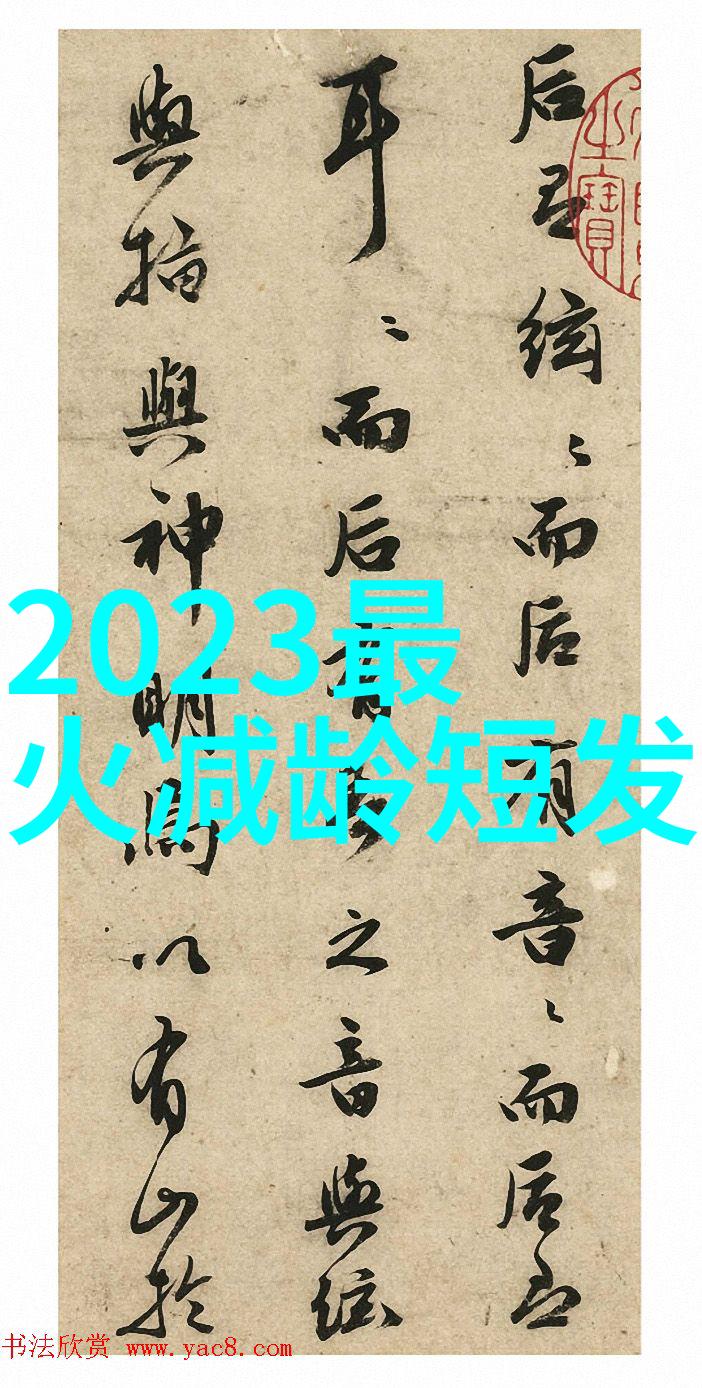 后絃〻而后有音〻而后
耳〻而后有之音與絃
與指與神明以有山於
之寶
2023最
火减龄短发
书法欣赏 www.yac8.com